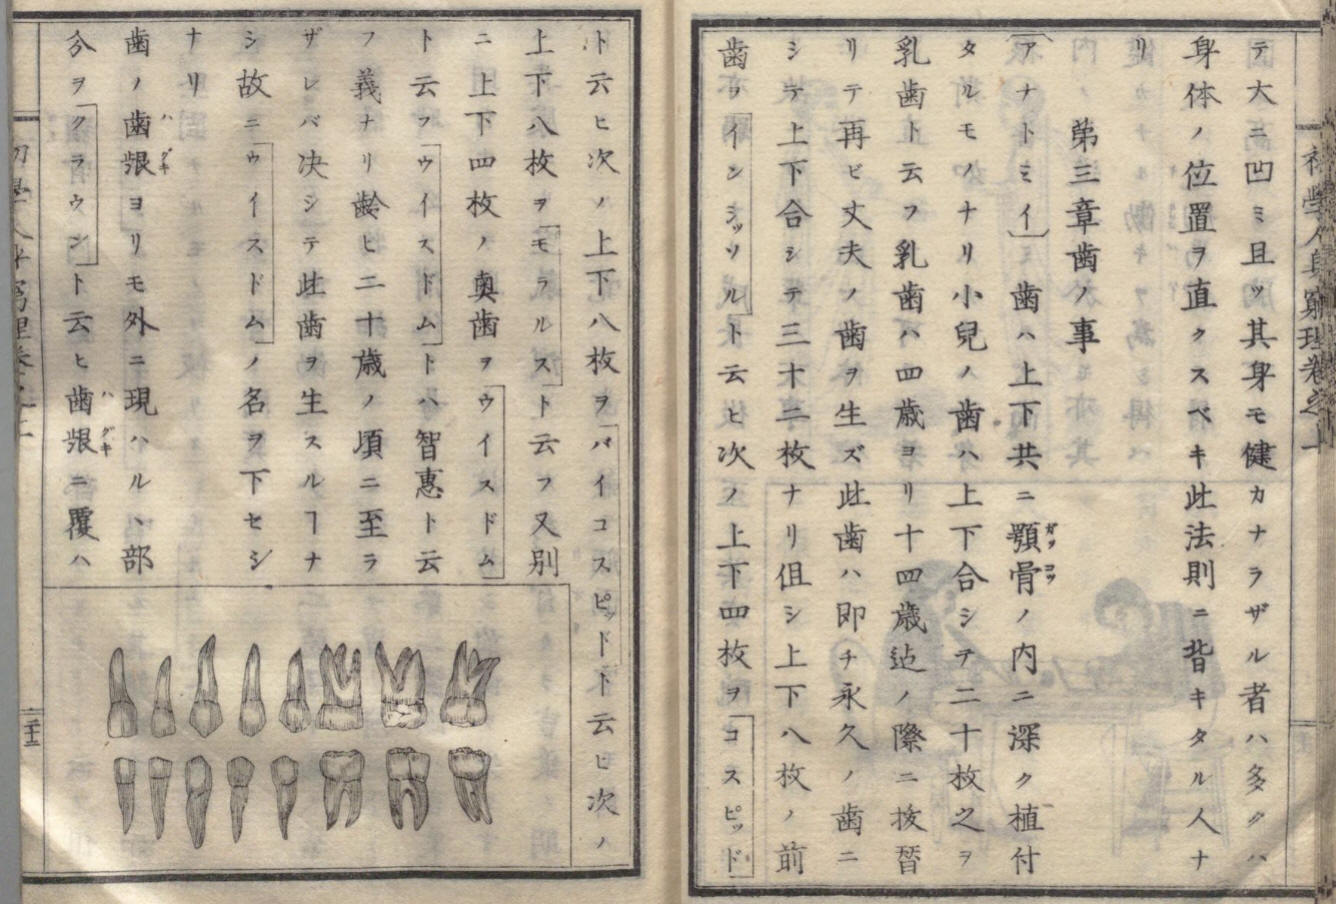 初學人身窮理卷之上
テ大ニ凹ミ且ツ其身モ健カナラザル者ハ多クハ
身体ノ位置ヲ直クスベキ此法則ニ背キタル人ナ
リ
第三章歯ノ事
〔アナトミイ〕歯ハ上下共ニ顎骨ノ内ニ深ク植付
ガクコツ
タルモノナリ小兒ノ歯ハ上下合シテ二十枚之ヲ
乳歯ト云フ乳歯ハ四歳ヨリ十四歳迠ノ際ニ拔替
リテ再ビ丈夫ノ歯ヲ生ズ此歯ハ即チ永久ノ歯ニ
シテ上下合シテ三十二枚ナリ但シ上下八枚ノ前
歯ヲ「インシッソル」ト云ヒ次ノ上下四枚ヲ「コスピッド」
ト云ヒ次ノ上下八枚ヲ「バイコスピッド」ト云ヒ次ノ
上下八枚ヲ「モラルス」ト云フ又別
ニ上下四枚ノ奥歯ヲ「ウイスドム」
ト云フ「ウイスドム」トハ智惠ト云
フ義ナリ齢ヒ二十歳ノ頃ニ至ラ
ザレバ决シテ此歯ヲ生スルヿナ
シ故ニ「ウイスドム」ノ名ヲ下セシ
ナリ
歯ノ歯齦ヨリモ外ニ現ハルヽ部
ハグキ
分ヲ「クラウン」ト云ヒ歯齦ニ覆ハ
ハグキ
初學人身窮理卷之上
二十二